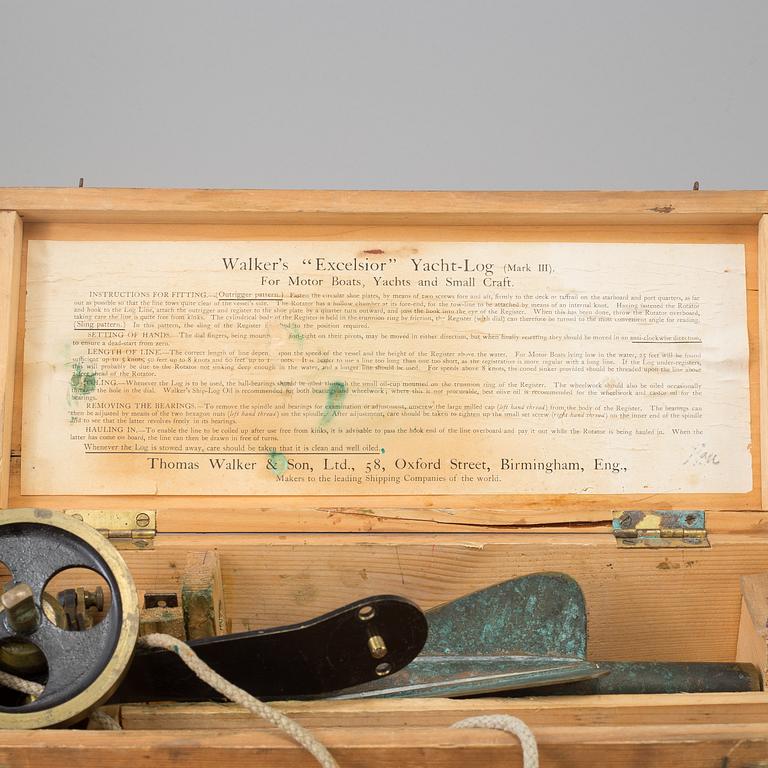 Walker's "Excelsior" Yacht-Log (Mark III).
For Motor Boats, Yachts and Small Craft.
INSTRUCTIONS FOR FITTING.—(Outrigger pattern.) Fasten the circular shoe plates, by means of two screws fore and aft, firmly to the deck or taffrail on the starboard and port quarters, as far
out as possible so that the line tows quite clear of the vessel's side. The Rotator has a hollow chamber at its fore-end, for the tow-line to be attached by means of an internal knot. Having fastened the Rotator
and hook to the Log Line, attach the outrigger and register to the shoe plate by a quarter turn outward, and pass the hook into the eye of the Register. When this has been done, throw the Rotator overboard,
taking care the line is quite free from kinks. The cylindrical body of the Register is held in the trunnion ring by friction, the Register (with dial) can therefore be turned to the most convenient angle for reading.
(Sling pattern.) In this pattern, the sling of the Register the position required.
SETTING OF HANDS.—The dial fingers, being on their pivots, may be moved in either direction, but when finally resetting they should be moved in an anti-clockwise direction,
to ensure a dead-start from zero.
LENGTH OF LINE.—The correct length of line upon the speed of the vessel and the height of the Register above the water. For Motor Boats lying low in the water, 25 feet will be found
sufficient up to 5 knots, 50 feet up to 8 knots and 60 feet up to It is better to use a line too long than one too short, as the registration is more regular with a long line. If the Log under-registers,
this will probably be due to the Rotator not sinking deep enough in the water, and a longer line should be used. For speeds above 8 knots, the coned sinker provided should be threaded upon the line about
ahead of the Rotator.
Whenever the Log is to be used, the ball-bearings should be oiled the small oil-cup mounted on the trunnion ring of the Register. The wheelwork should also be oiled occasionally
the hole in the dial. Walker's Ship-Log Oil is recommended for both bearings and wheelwork; where this is not procurable, best olive oil is recommended for the wheelwork and castor oil for the
bearings.
REMOVING THE BEARINGS.—To remove the spindle and bearings for examination or adjustment, unscrew the large milled cap (left hand thread) from the body of the Register. The bearings can
then be adjusted by means of the two hexagon nuts (left hand thread) on the spindle. After adjustment, care should be taken to tighten up the small set screw (right hand thread) on the inner end of the spindle
and to see that the latter revolves freely in its bearings.
HAULING IN.—To enable the line to be coiled up after use free from kinks, it is advisable to pass the hook end of the line overboard and pay it out while the Rotator is being hauled in. When the
latter has come on board, the line can then be drawn in free of turns.
Whenever the Log is stowed away, care should be taken that it is clean and well oiled.
Thomas Walker & Son, Ltd., 58, Oxford Street, Birmingham, Eng.,
Makers to the leading Shipping Companies of the world.